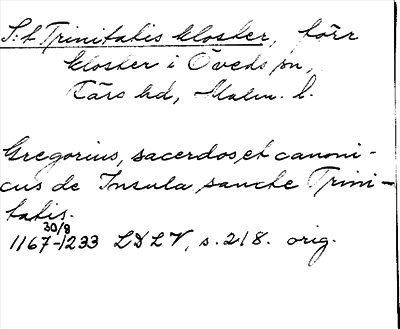 S:t Trinitatis kloster, förr
kloster i Öveds sn,
Färs hd, Malm. l.
Gregorius, sacerdos, et canoni-
cus de Insula sancte Trini-
tatis.
30/8
1167-1233 LDLV, s. 218. orig.